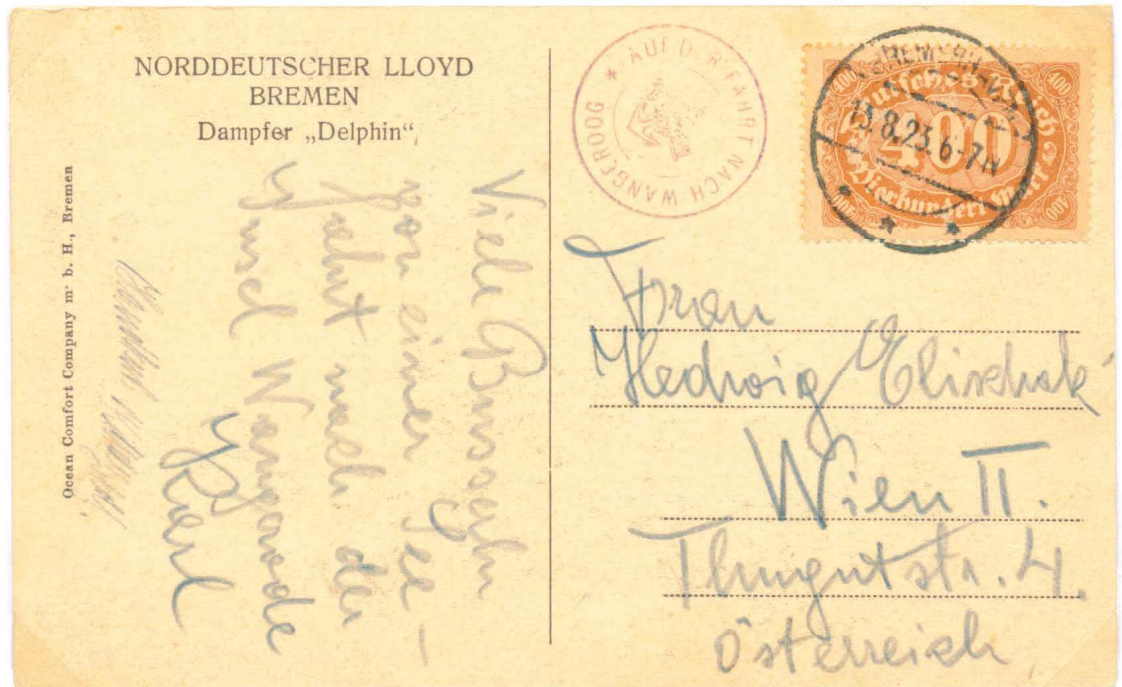 NORDDEUTSCHER LLOYD
BREMEN
Dampfer „Delphin“,
Ocean Comfort Company m· b. H., Bremen
Viele
von einer See-
fahrt nach der
Insel Wangerode
Karl
* AUF DER FAHRT NACH WANGEROOG
Deutsches Reich
400
400
400
Vierhundert Mark
400
400
13.8.23. 6-7N
Frau
Hedwig Elischak
Wien II.
Thugutstr. 4.
Österreich